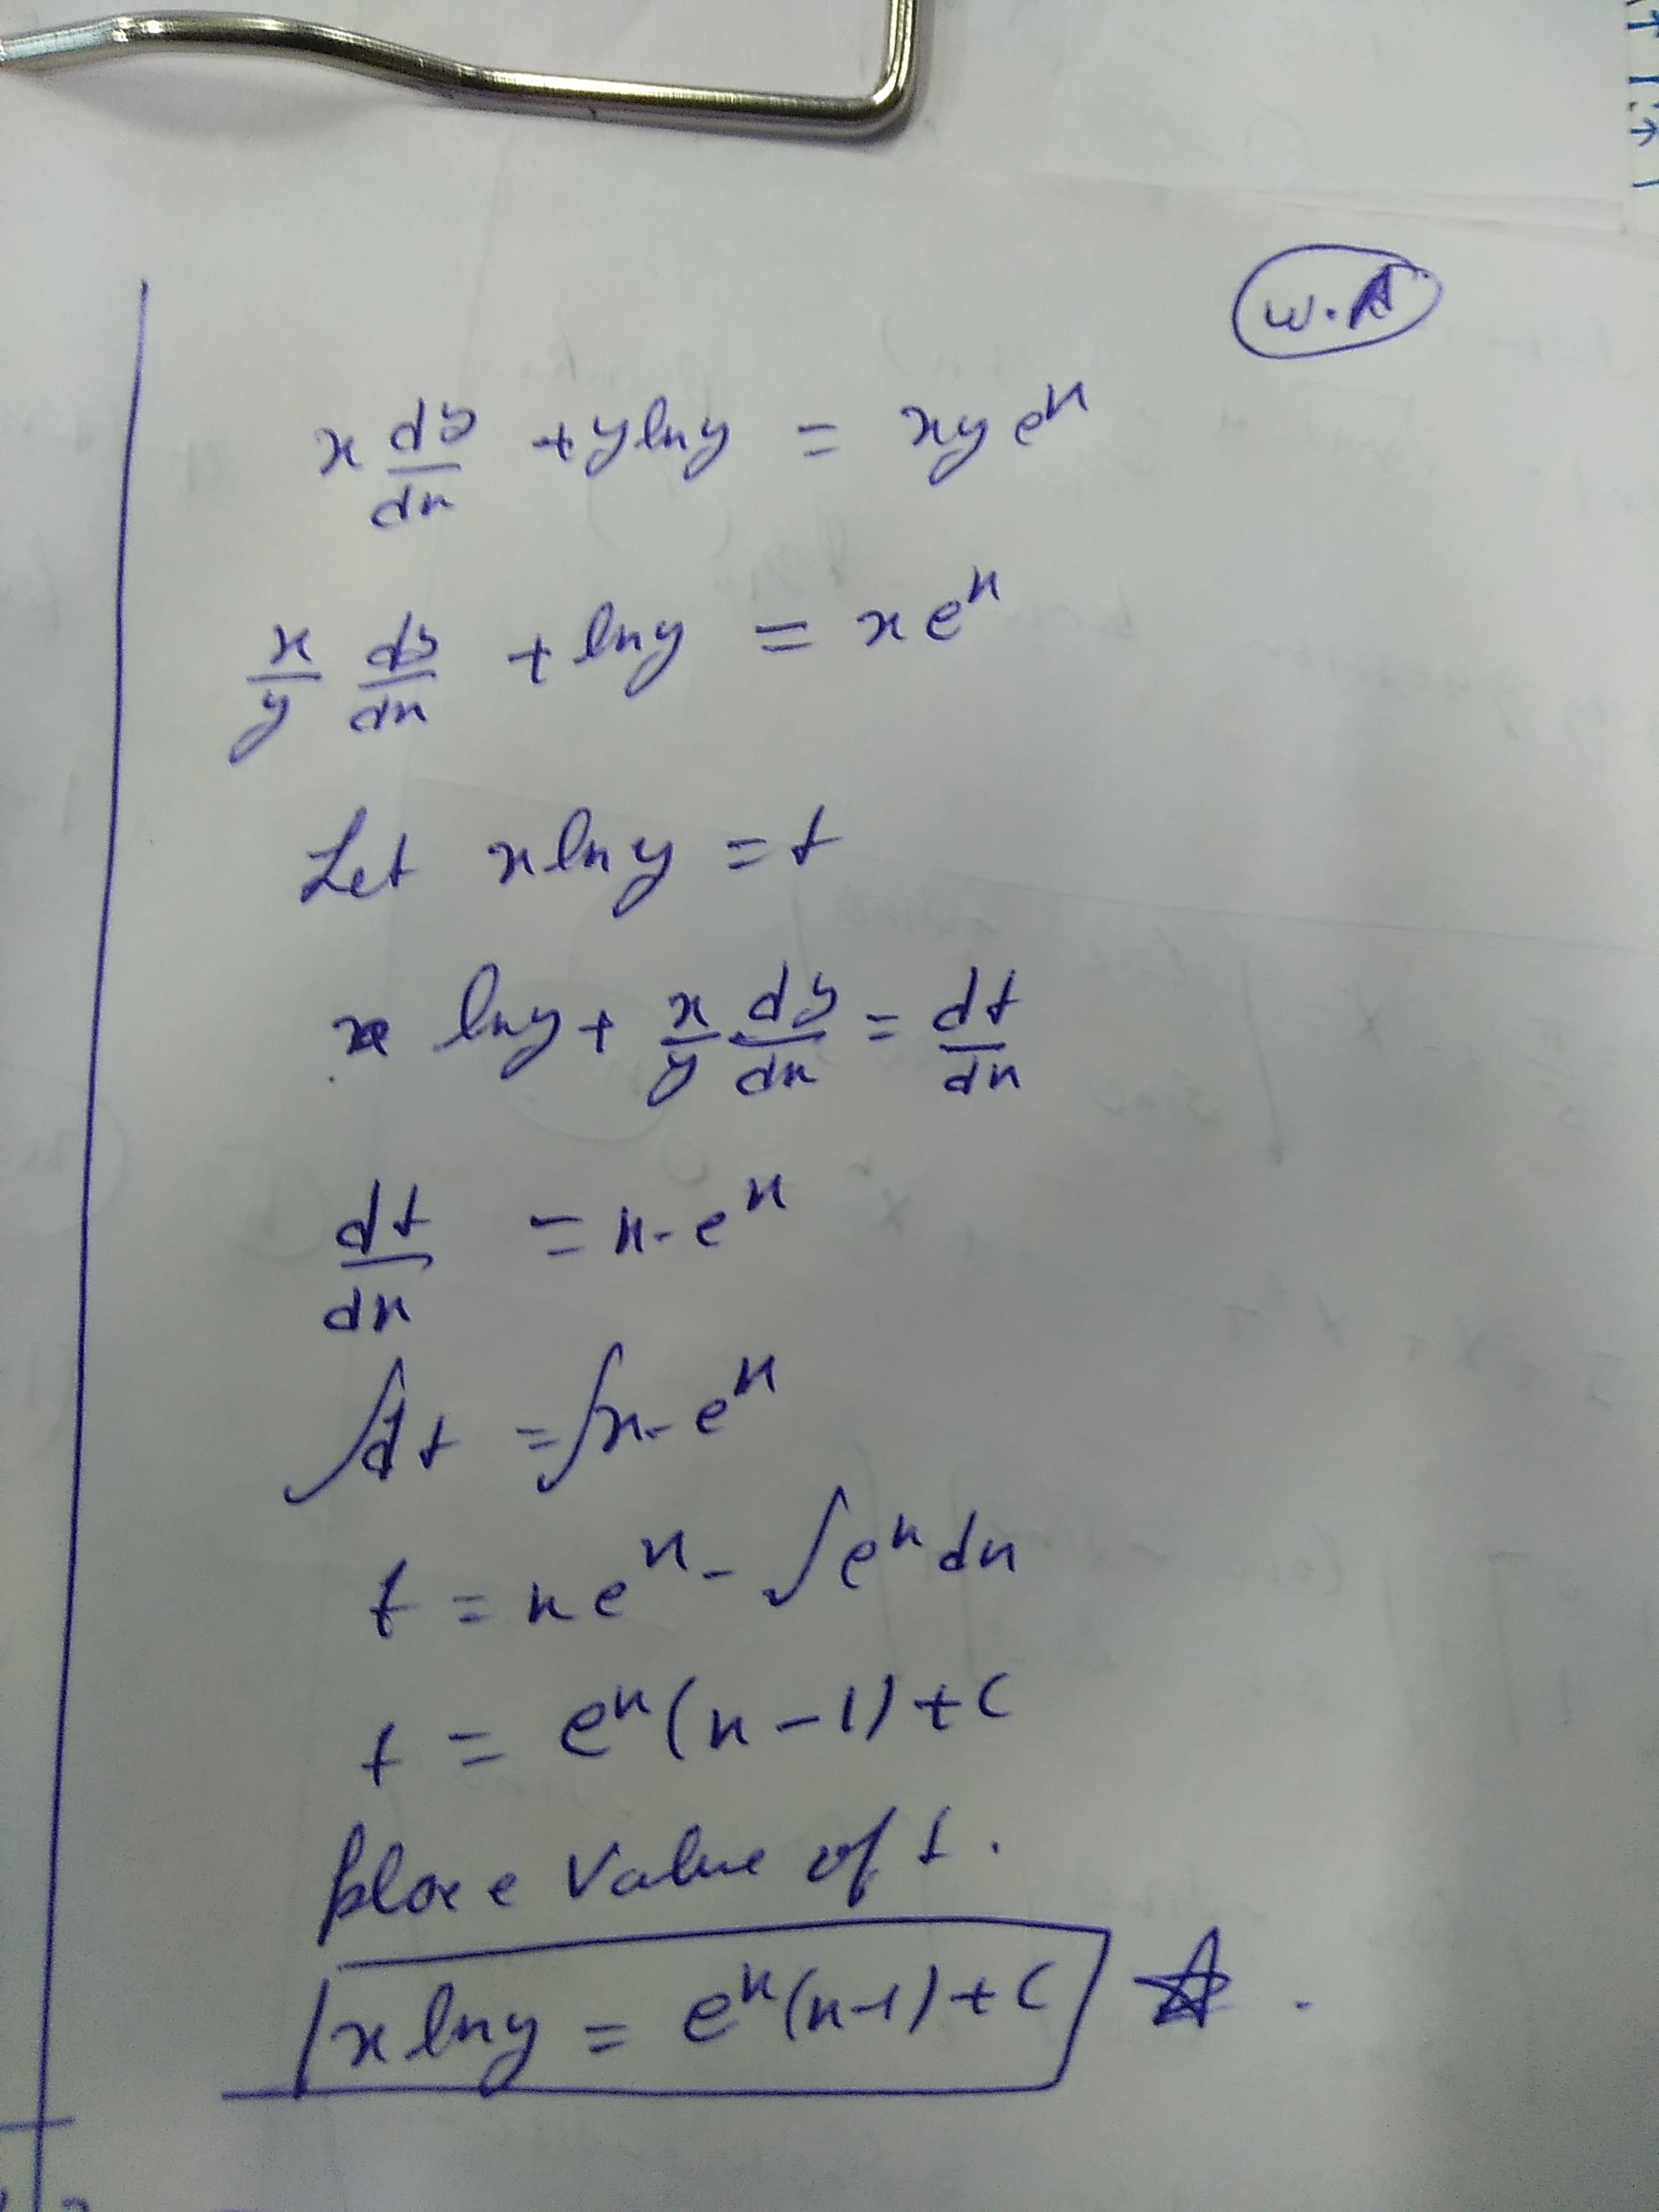 W.A
x dy/dx + y ln y = xy e^x
x/y dy/dx + ln y = x e^x
Let x ln y = t
ln y + x/y dy/dx = dt/dx
dt/dx = x · e^x
∫dt = ∫x · e^x
t = x e^x - ∫e^x dx
t = e^x (x - 1) + C
place value of t .
x ln y = e^x (x-1) + C